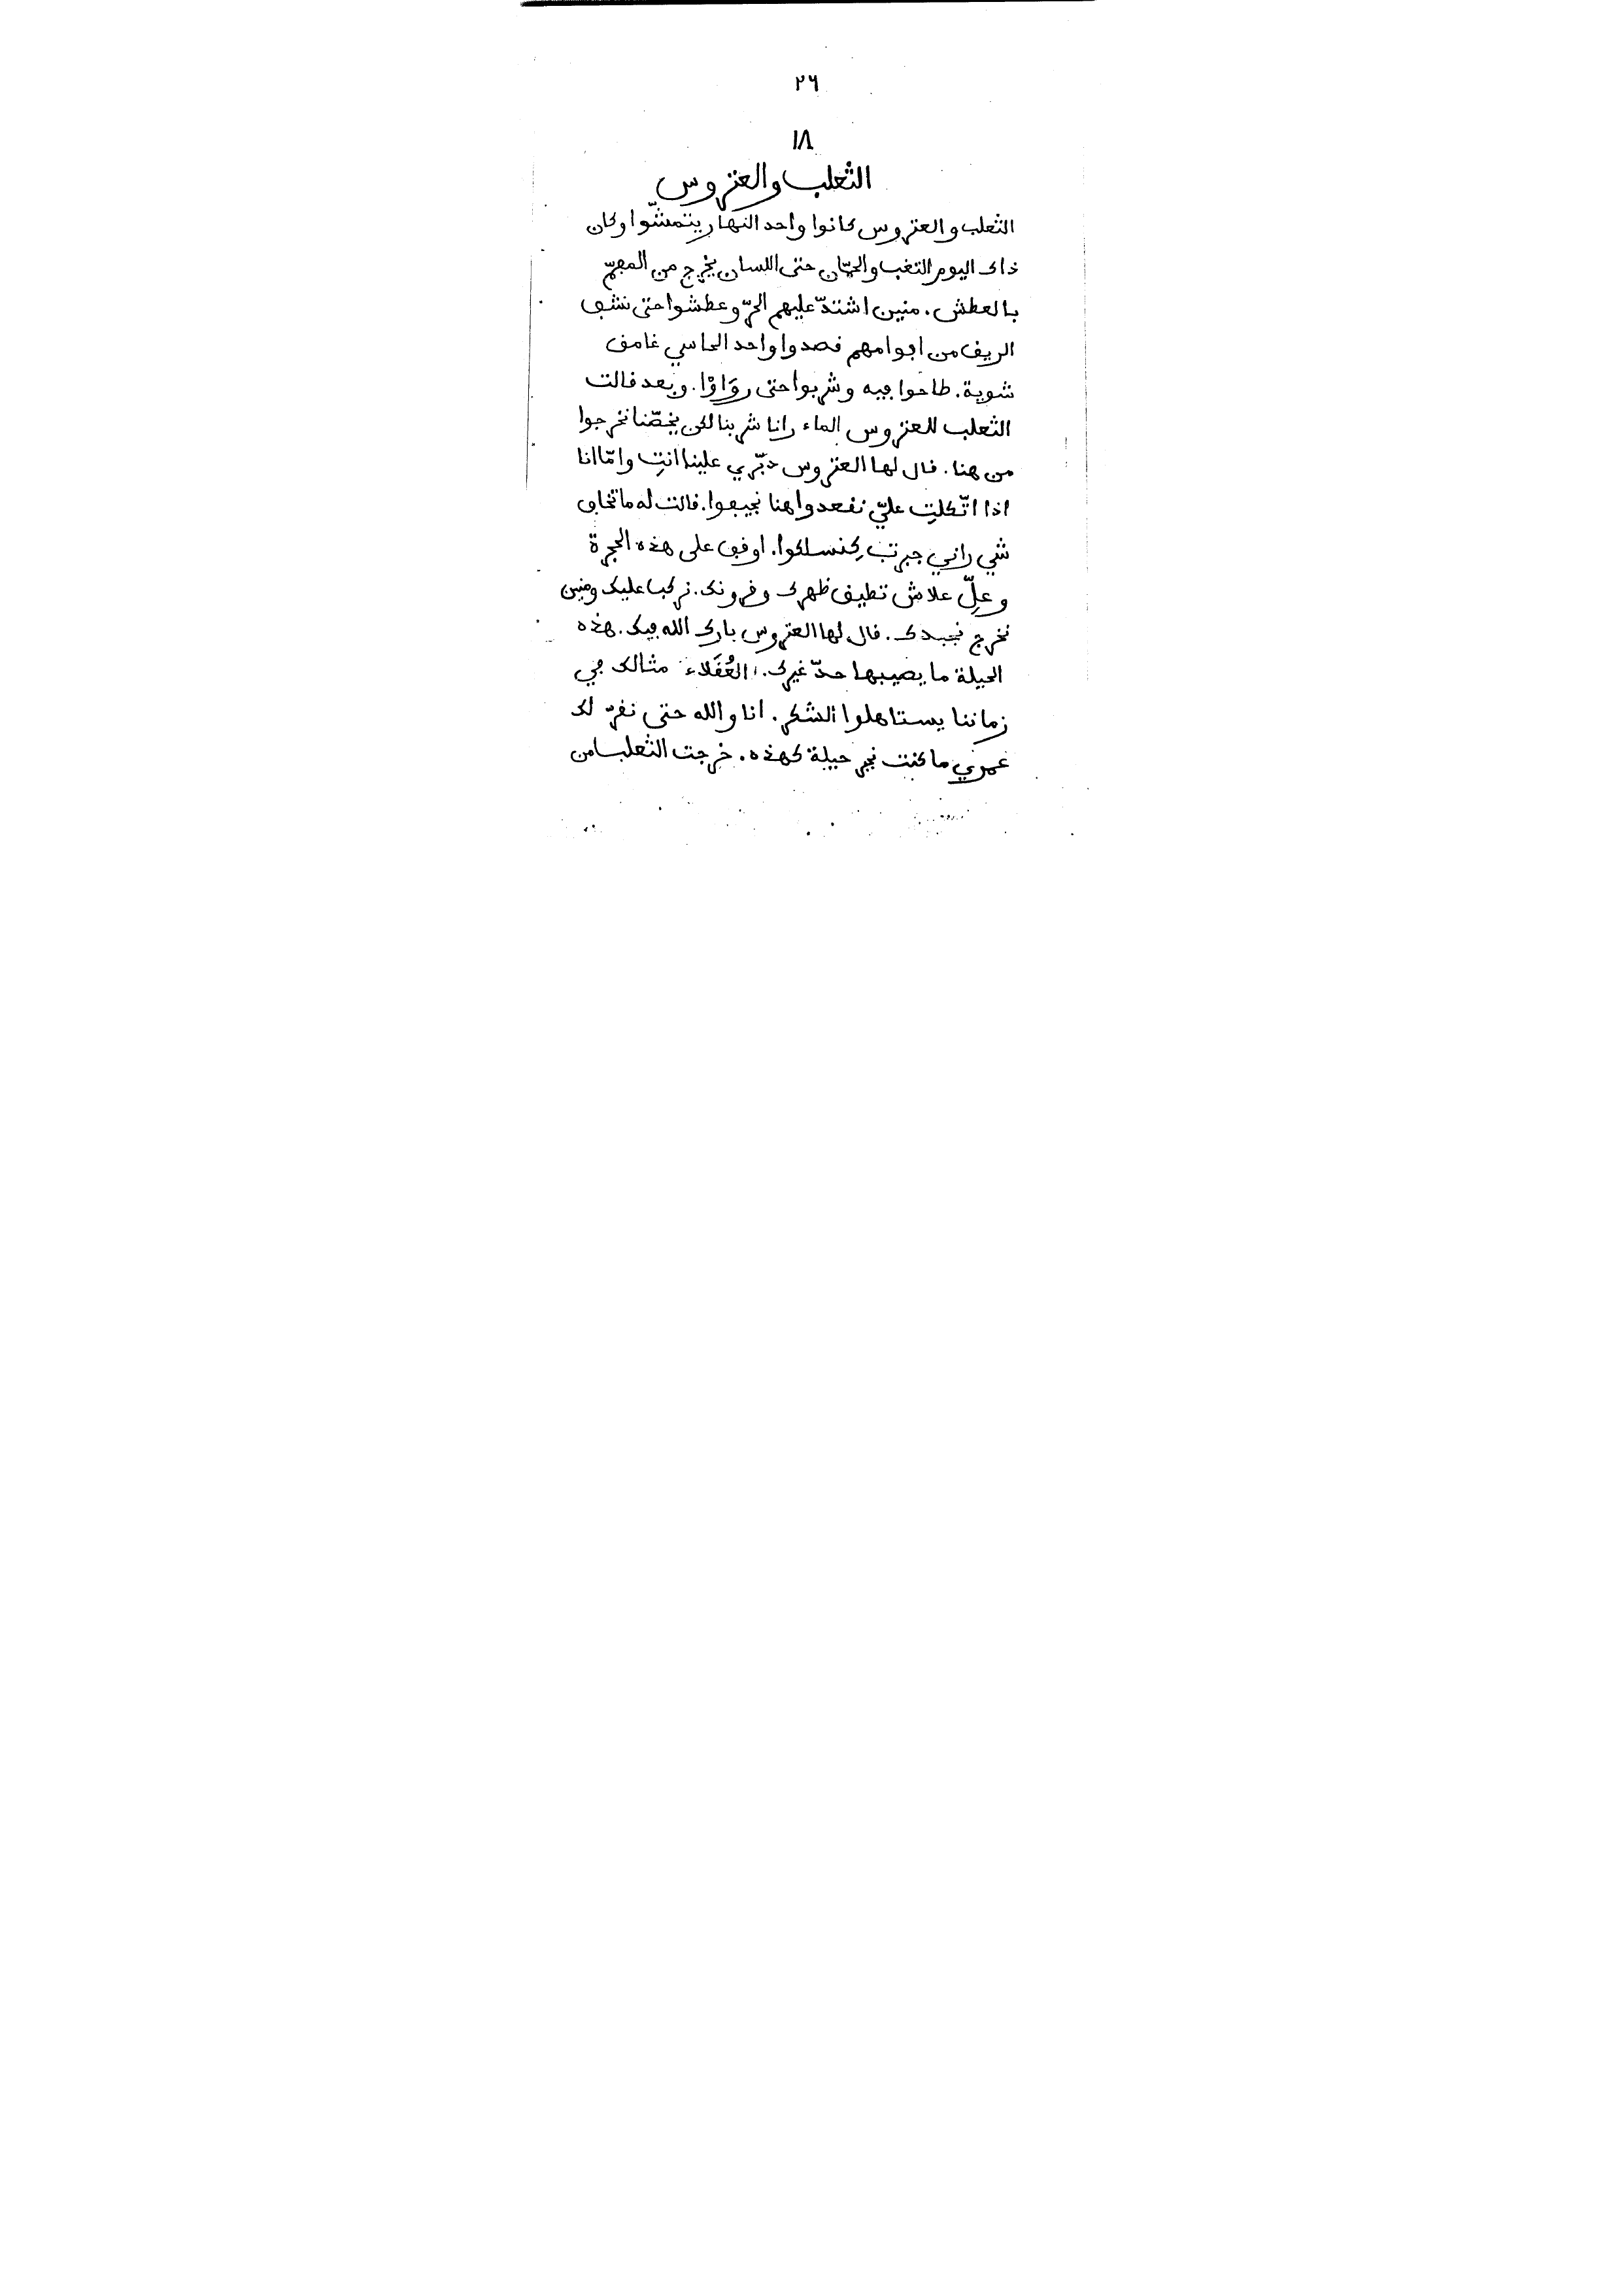 ٢٦
١٨
الثعلب والعتروس
الثعلب والعتروس كانوا واحد النهار يتمشّوا وكان
ذاك اليوم التغب والحمّان حتى اللسان يخرج من الفمّ
بالعطش. منين اشتدّ عليهم الحرّ وعطشوا حتى نشف
الريق من افوامهم قصدوا واحد الحاسي غامق
شوية. طاحوا فيه وشربوا حتى روَاوْا. وبعد قالت
الثعلب للعتروس الماء رانا شربنا لكن يخصّنا نخرجوا
من هنا. قال لها العتروس دبّري علينا انتِ وامّا انا
اذا اتّكلتِ عليّ نقعدوا هنا نجيفوا. قالت له ما تخاف
شي راني جبرت كِنسلكوا. اوقف على هذه الحجرة
وعلِّ علاش تطيق ظهرك وقرونك. نركب عليك ومنين
نخرج نجبدك. قال لها العتروس بارك الله فيك. هذه
الحيلة ما يصيبها حدّ غيرك. العُقَلاء مثالك في
زماننا يستاهلوا الشكر. انا والله حتى نقرّ لك
عمري ما كنت نجبر حيلة كهذه. خرجت الثعلب من